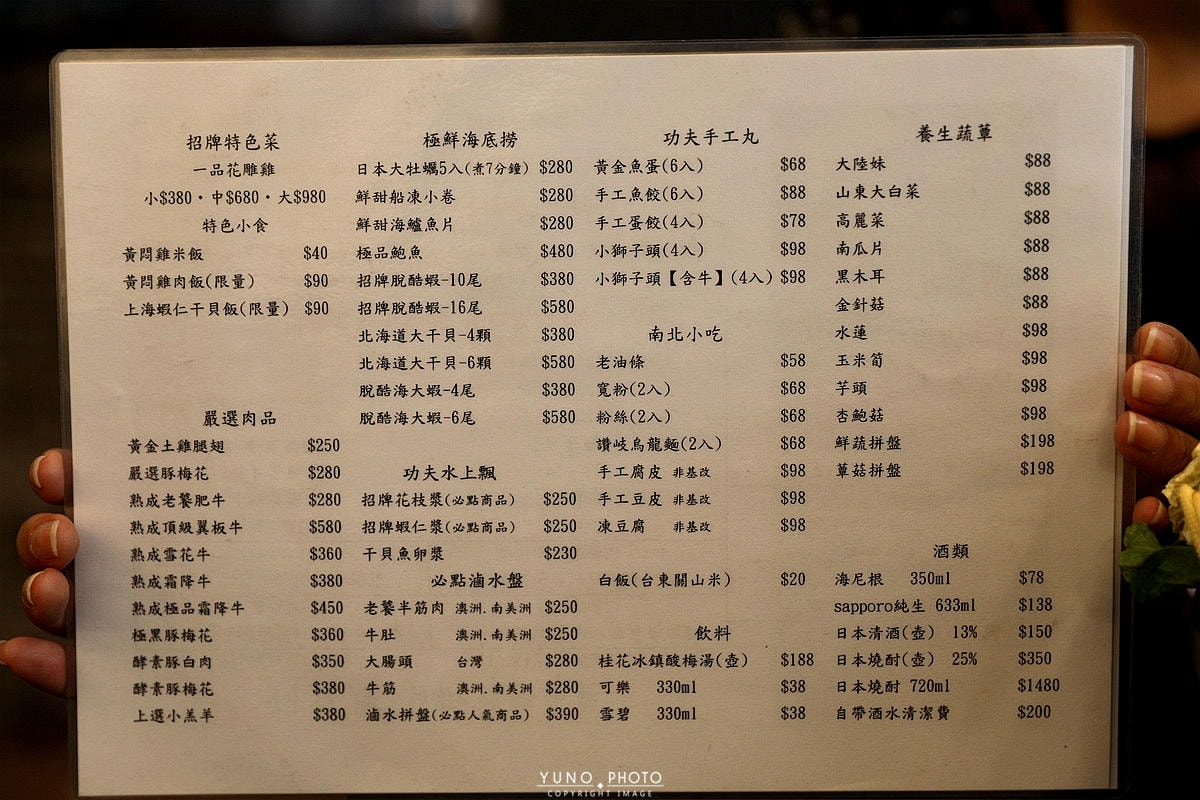 招牌特色菜
一品花雕雞
小$380·中$680·大$980
特色小食
黃悶雞米飯 $40
黃悶雞肉飯(限量) $90
上海蝦仁干貝飯(限量) $90
嚴選肉品
黃金土雞腿翅 $250
嚴選豚梅花 $280
熟成老饕肥牛 $280
熟成頂級翼板牛 $580
熟成雪花牛 $360
熟成霜降牛 $380
熟成極品霜降牛 $450
極黑豚梅花 $360
酵素豚白肉 $350
酵素豚梅花 $380
上選小羔羊 $380
極鮮海底撈
日本大牡蠣5入(煮7分鐘) $280
鮮甜船凍小卷 $280
鮮甜海鱸魚片 $280
極品鮑魚 $480
招牌脫酷蝦-10尾 $380
招牌脫酷蝦-16尾 $580
北海道大干貝-4顆 $380
北海道大干貝-6顆 $580
脫酷海大蝦-4尾 $380
脫酷海大蝦-6尾 $580
功夫水上飄
招牌花枝漿(必點商品) $250
招牌蝦仁漿(必點商品) $250
干貝魚卵漿 $230
必點滷水盤
老饕半筋肉 澳洲.南美洲 $250
牛肚 澳洲.南美洲 $250
大腸頭 台灣 $280
牛筋 澳洲.南美洲 $280
滷水拼盤(必點人氣商品) $390
功夫手工丸
黃金魚蛋(6入) $68
手工魚餃(6入) $88
手工蛋餃(4入) $78
小獅子頭(4入) $98
小獅子頭【含牛】(4入) $98
南北小吃
老油條 $58
寬粉(2入) $68
粉絲(2入) $68
讚岐烏龍麵(2入) $68
手工腐皮 非基改 $98
手工豆皮 非基改 $98
凍豆腐 非基改 $98
白飯(台東關山米) $20
飲料
桂花冰鎮酸梅湯(壺) $188
可樂 330ml $38
雪碧 330ml $38
養生蔬蕈
大陸妹 $88
山東大白菜 $88
高麗菜 $88
南瓜片 $88
黑木耳 $88
金針菇 $88
水蓮 $98
玉米筍 $98
芋頭 $98
杏鮑菇 $98
鮮蔬拼盤 $198
蕈菇拼盤 $198
酒類
海尼根 350ml $78
sapporo純生 633ml $138
日本清酒(壺) 13% $150
日本燒酎(壺) 25% $350
日本燒酎 720ml $1480
自帶酒水清潔費 $200
YUNO PHOTO
COPYRIGHT IMAGE